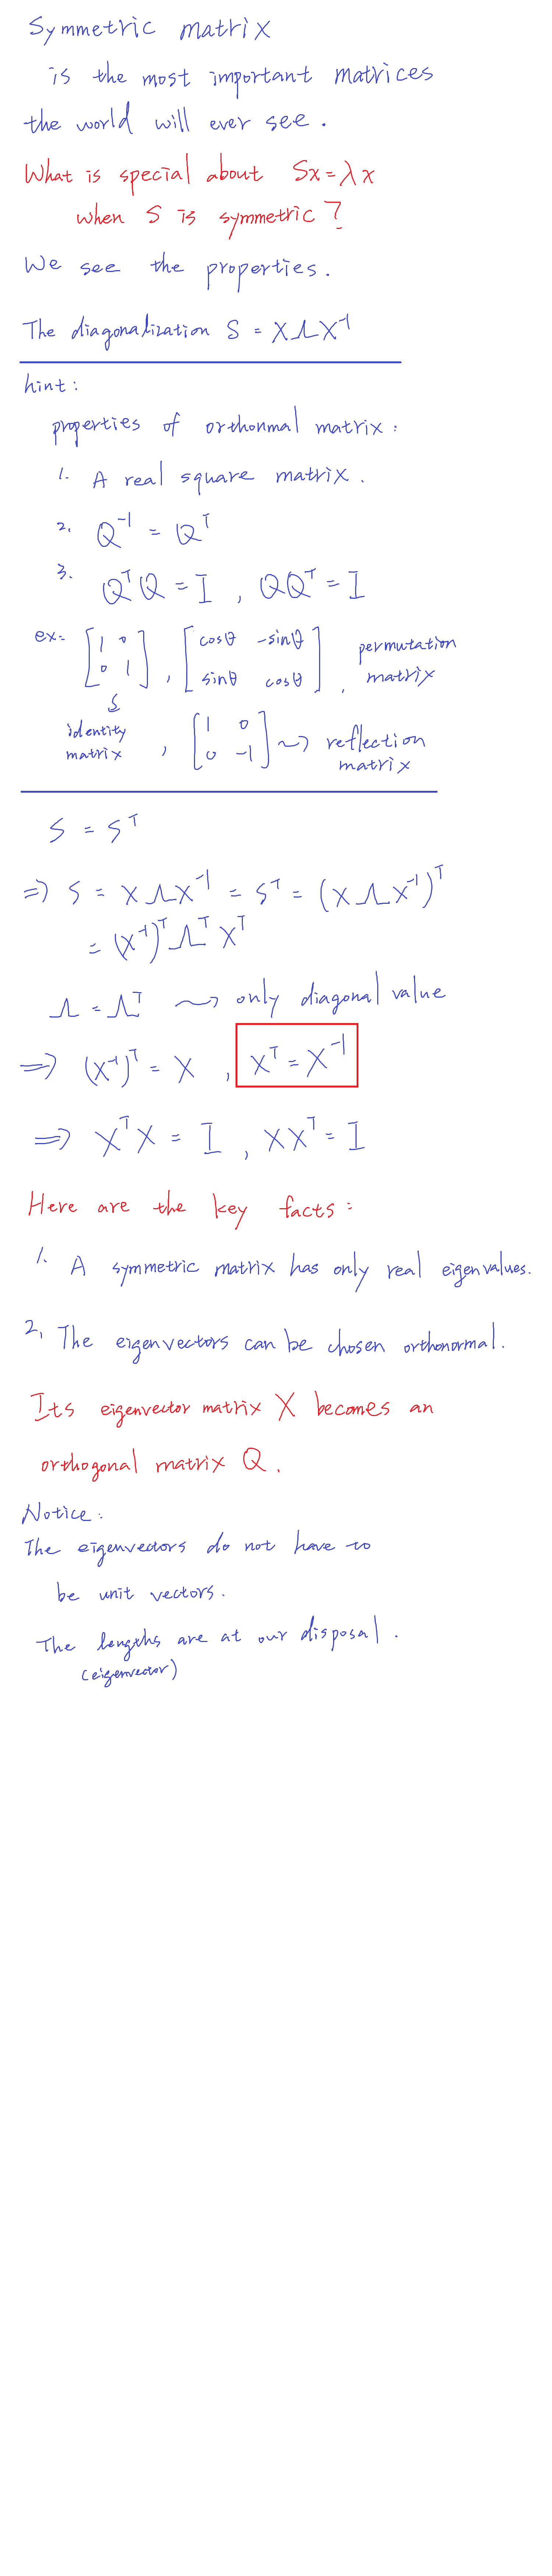 Symmetric matrix
is the most important matrices
the world will ever see.
What is special about Sx=λx
when S is symmetric?
We see the properties.
The diagonalization S = XΛX⁻¹
hint:
properties of orthonmal matrix:
1. A real square matrix.
2. Q⁻¹ = Qᵀ
3. QᵀQ = I , QQᵀ = I
ex: [1 0; 0 1] , [cosθ -sinθ; sinθ cosθ] , permutation matrix
identity matrix , [1 0; 0 -1] ~> reflection matrix
S = Sᵀ
=> S = XΛX⁻¹ = Sᵀ = (XΛX⁻¹)ᵀ
= (X⁻¹)ᵀΛᵀXᵀ
Λ = Λᵀ ~> only diagonal value
=> (X⁻¹)ᵀ = X , Xᵀ = X⁻¹
=> XᵀX = I , XXᵀ = I
Here are the key facts:
1. A symmetric matrix has only real eigenvalues.
2. The eigenvectors can be chosen orthonormal.
Its eigenvector matrix X becomes an
orthogonal matrix Q.
Notice:
The eigenvectors do not have to
be unit vectors.
The lengths are at our disposal.
(eigenvector)